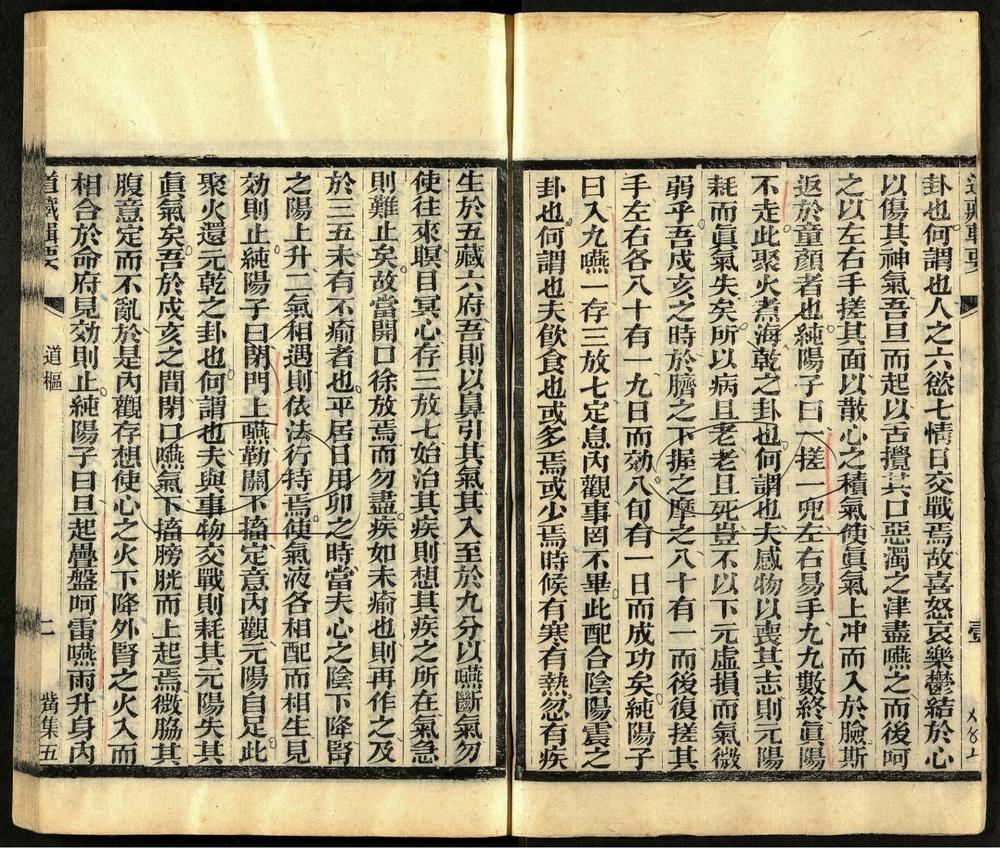 卦也何謂也人之六慾七情日交戰焉故喜怒哀樂鬱結於心
以傷其神氣吾旦而起以舌攪其口惡濁之津盡嚥之而後呵
之以左右手搓其面以散心之積氣使眞氣上冲而入於臉斯
返於童顔者也純陽子曰一搓一兜左右易手九九數終眞陽
不走此聚火煮海乾之卦也何謂也夫感物以喪其志則元陽
耗而眞氣失矣所以病且老老且死豈不以下元虛損而氣微
弱乎吾戌亥之時於臍之下握之摩之八十有一而後復搓其
手左右各八十有一九日而効八旬有一日而成功矣純陽子
曰入九嚥一存三放七定息內觀事罔不畢此配合陰陽震之
卦也何謂也夫飲食也或多焉或少焉時候有寒有熱忽有疾
生於五藏六府吾則以鼻引其氣其入至於九分以嚥斷氣勿
使往來瞑目冥心存三放七始治其疾則想其疾之所在氣急
則難止矣故當開口徐放焉而勿盡疾如未瘉也則再作之及
於三五未有不瘉者也平居日用卯之時當夫心之陰下降腎
之陽上升二氣相遇則依法行持焉使氣液各相配而相生見
効則止純陽子曰閉門上嚥勒關下搐定意內觀元陽自足此
聚火還元乾之卦也何謂也夫與事物交戰則耗其元陽失其
眞氣矣吾於戌亥之間閉口嚥氣下搐膀胱而上起焉微脇其
腹意定而不亂於是內觀存想使心之火下降外腎之火入而
相合於命府見効則止純陽子曰旦起疊盤呵雷嚥雨升身內
道藏輯要
道樞
觜集五